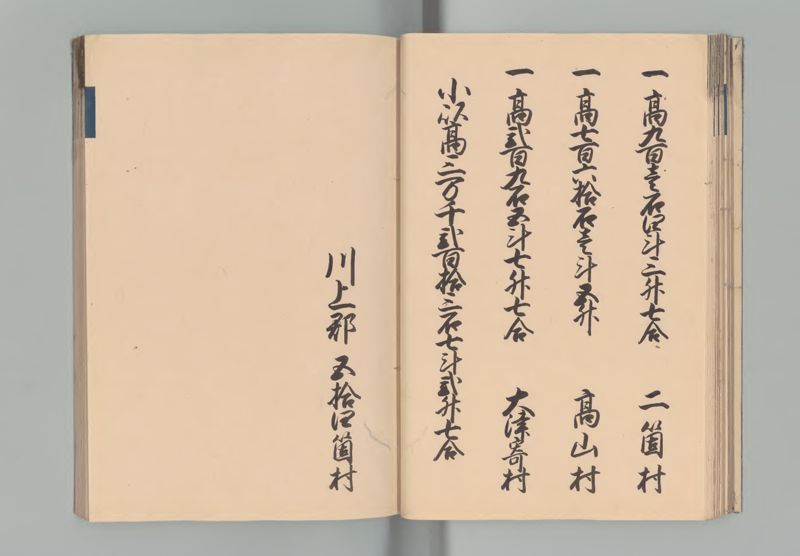 一高九百壱石四斗三升七合 二箇村
一高七百六拾石壱斗五升 高山村
一高弐百九石五斗七升七合 大津寄村
小以高三万千弐百拾三石七斗弐升七合
川上郡 五拾四箇村